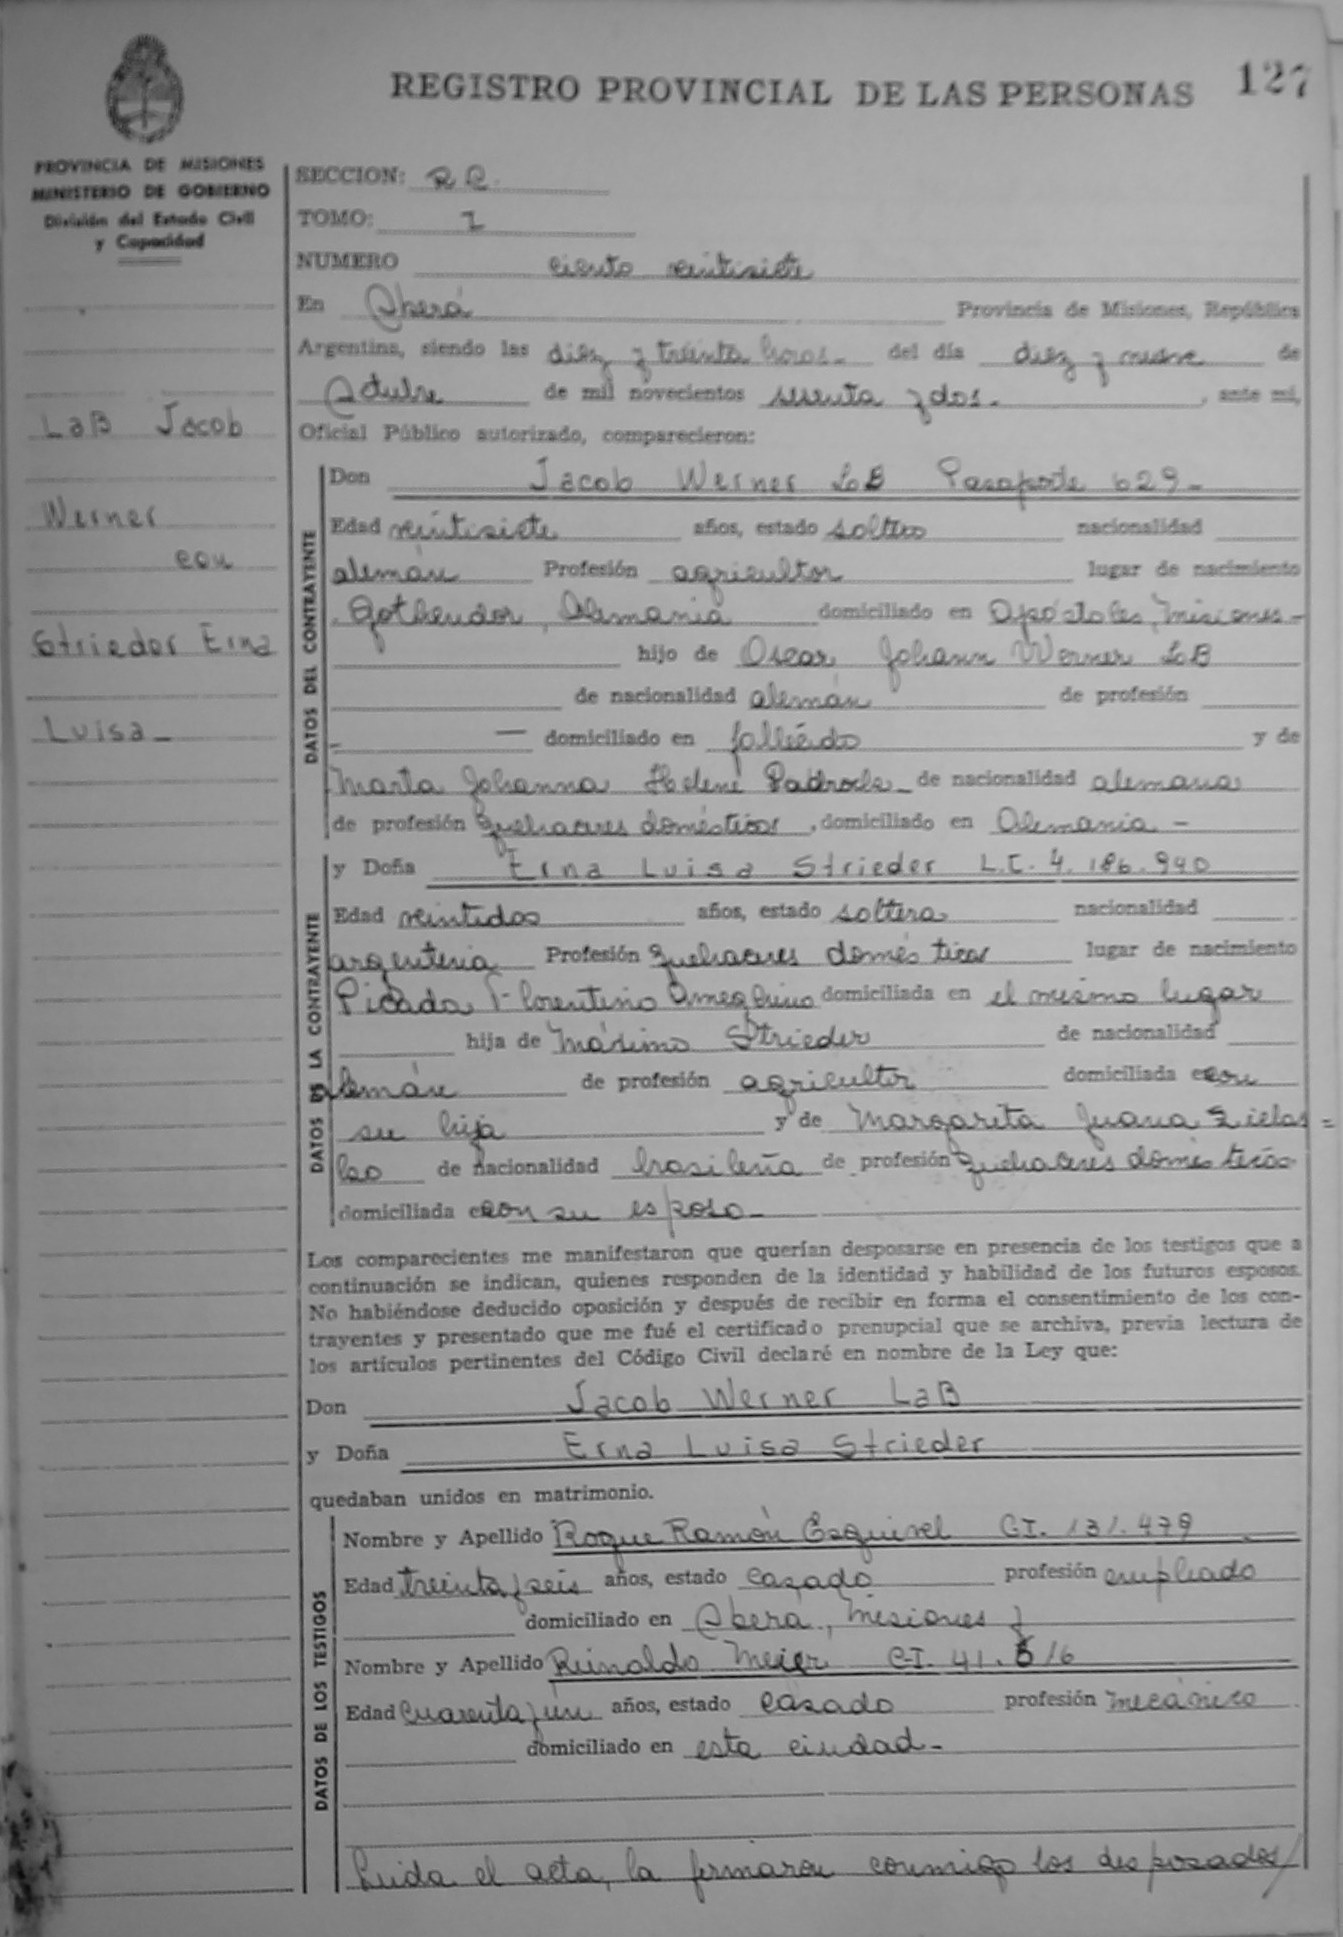 REGISTRO PROVINCIAL DE LAS PERSONAS 127
PROVINCIA DE MISIONES
MINISTERIO DE GOBIERNO
División del Estado Civil
y Capacidad
LaB Jacob
Werner
con
Strieder Erna
Luisa_
SECCION: R C.
TOMO: I
NUMERO ciento veintisiete
En Oberá Provincia de Misiones, República
Argentina, siendo las diez y treinta horas- del día diez y nueve de
Octubre de mil novecientos sesenta y dos- , ante mí,
Oficial Público autorizado, comparecieron:
DATOS DEL CONTRAYENTE
Don Jacob Werner LaB Pasaporte 629-
Edad veintisiete años, estado soltero nacionalidad
alemán Profesión agricultor lugar de nacimiento
Alemania domiciliado en Apóstoles, Misiones-
hijo de Oscar Johann Werner LaB
de nacionalidad alemán de profesión
- — domiciliado en fallecido y de
Marta Johanna Helene de nacionalidad alemana
de profesión quehaceres domésticos, domiciliado en Alemania-
DATOS DE LA CONTRAYENTE
y Doña Erna Luisa Strieder L.C. 4.186.940
Edad veintidos años, estado soltera nacionalidad
argentina Profesión quehaceres domésticos lugar de nacimiento
Picada Florentino Ameghino domiciliada en el mismo lugar
hija de Máximo Strieder de nacionalidad
alemán de profesión agricultor domiciliada con
su hija y de Margarita Juana Zielas=
ko de nacionalidad brasileña de profesión quehaceres domésticos-
domiciliada con su esposo-
Los comparecientes me manifestaron que querían desposarse en presencia de los testigos que a
continuación se indican, quienes responden de la identidad y habilidad de los futuros esposos.
No habiéndose deducido oposición y después de recibir en forma el consentimiento de los con-
trayentes y presentado que me fué el certificado prenupcial que se archiva, previa lectura de
los artículos pertinentes del Código Civil declaré en nombre de la Ley que:
Don Jacob Werner LaB
y Doña Erna Luisa Strieder
quedaban unidos en matrimonio.
DATOS DE LOS TESTIGOS
Nombre y Apellido Roque Ramón Esquivel CI. 131.479
Edad treinta y seis años, estado casado profesión empleado
domiciliado en Oberá, Misiones y
Nombre y Apellido Reinaldo Meier C.I. 41.516
Edad cuarenta y un años, estado casado profesión mecánico
domiciliado en esta ciudad-
Leida el acta, la firmaron conmigo los desposados/